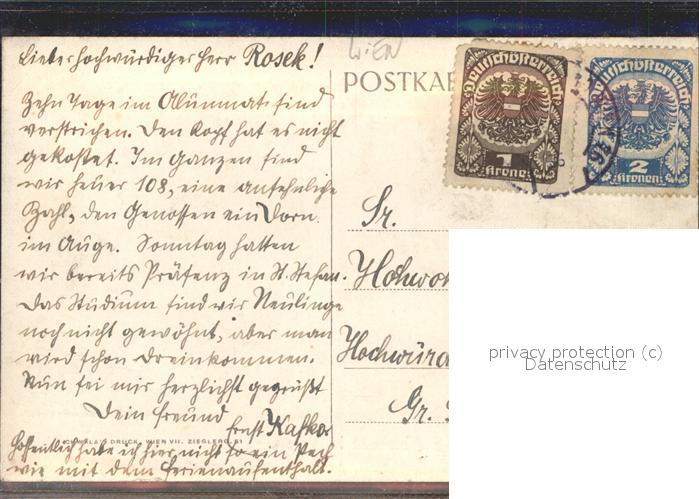 Lieber hochwürdiger Herr Rosek!
Zehn Tage im Alumnat sind
verstrichen. Den Kopf hat es nicht
gekostet. Im ganzen sind
wir heuer 108, eine ansehnliche
Zahl, den Genossen ein Dorn
im Auge. Sonntag hatten
wir bereits Präsenz in St. Stefan.
Das Studium sind wir Neulinge
noch nicht gewöhnt, aber man
wird schon dreinkommen.
Nun sei mir herzlichst gegrüßt
Dein Freund
Ernst Kafka
Hoffentlich habe ich hier nicht so ein Pech
wie mit dem Ferienaufenthalt.
DRUCK, WIEN VII. ZIEGLERG. 61
Wien
POSTKA
Deutschösterreich
1
Krone
Deutschösterreich
2
Kronen
Sr.
Hochw
Hochwürd
Gr.
privacy protection (c)
Datenschutz